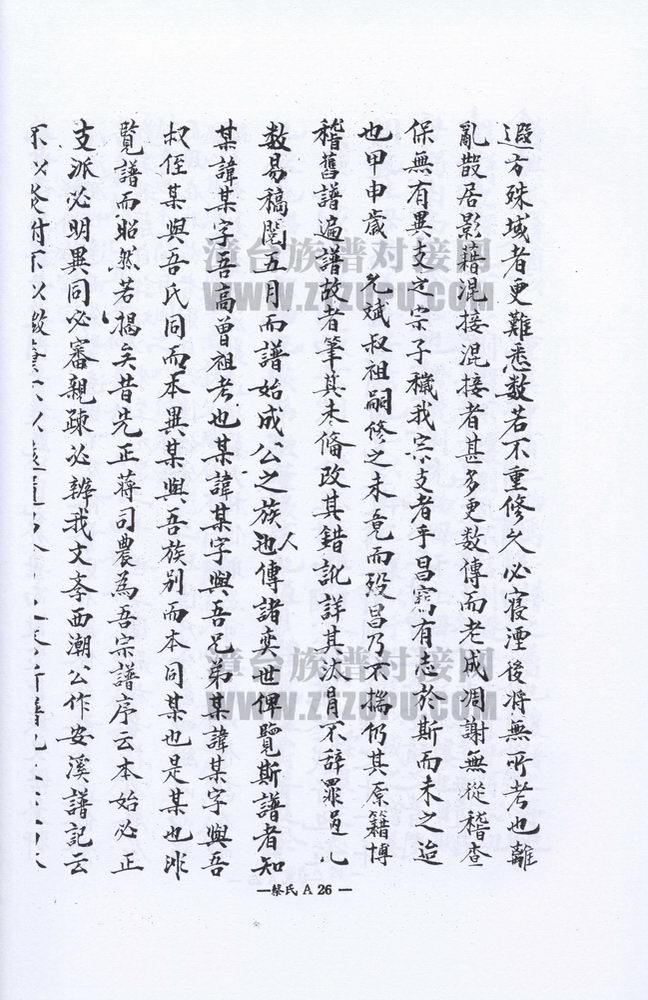 遐方殊域者更難悉数若不重修久必寢湮後将無所考也離
亂散居影籍混接混接者甚多更数傳而老成凋謝無從稽查
保無有異支之宗子穢我宗支者乎昌寫有志於斯而未之迨
也甲申歲 允斌叔祖嗣修之未竟而殁昌乃不揣仍其原籍博
稽舊譜遍譜故者筆其未俻改其錯訛詳其汰冐不辞罪
数易稿閱五月而譜始成公之族人也傳諸奕世俾覽斯譜者知
某諱某字吾高曾祖考也某諱某字與吾兄弟某諱某字與吾
叔侄某與吾氏同而本異某與吾族别而本同某也是某也非
覽譜而昭然若揭矣昔先正蒋司農為吾宗譜序云本始必正
支派必明異同必審親疎必辨我文荸西潮公作安溪譜記云
不以
漳台族谱对接网
WWW.ZTZUPU.COM
漳台族谱对接网
WWW.ZTZUPU.COM
—蔡氏 A 26 —